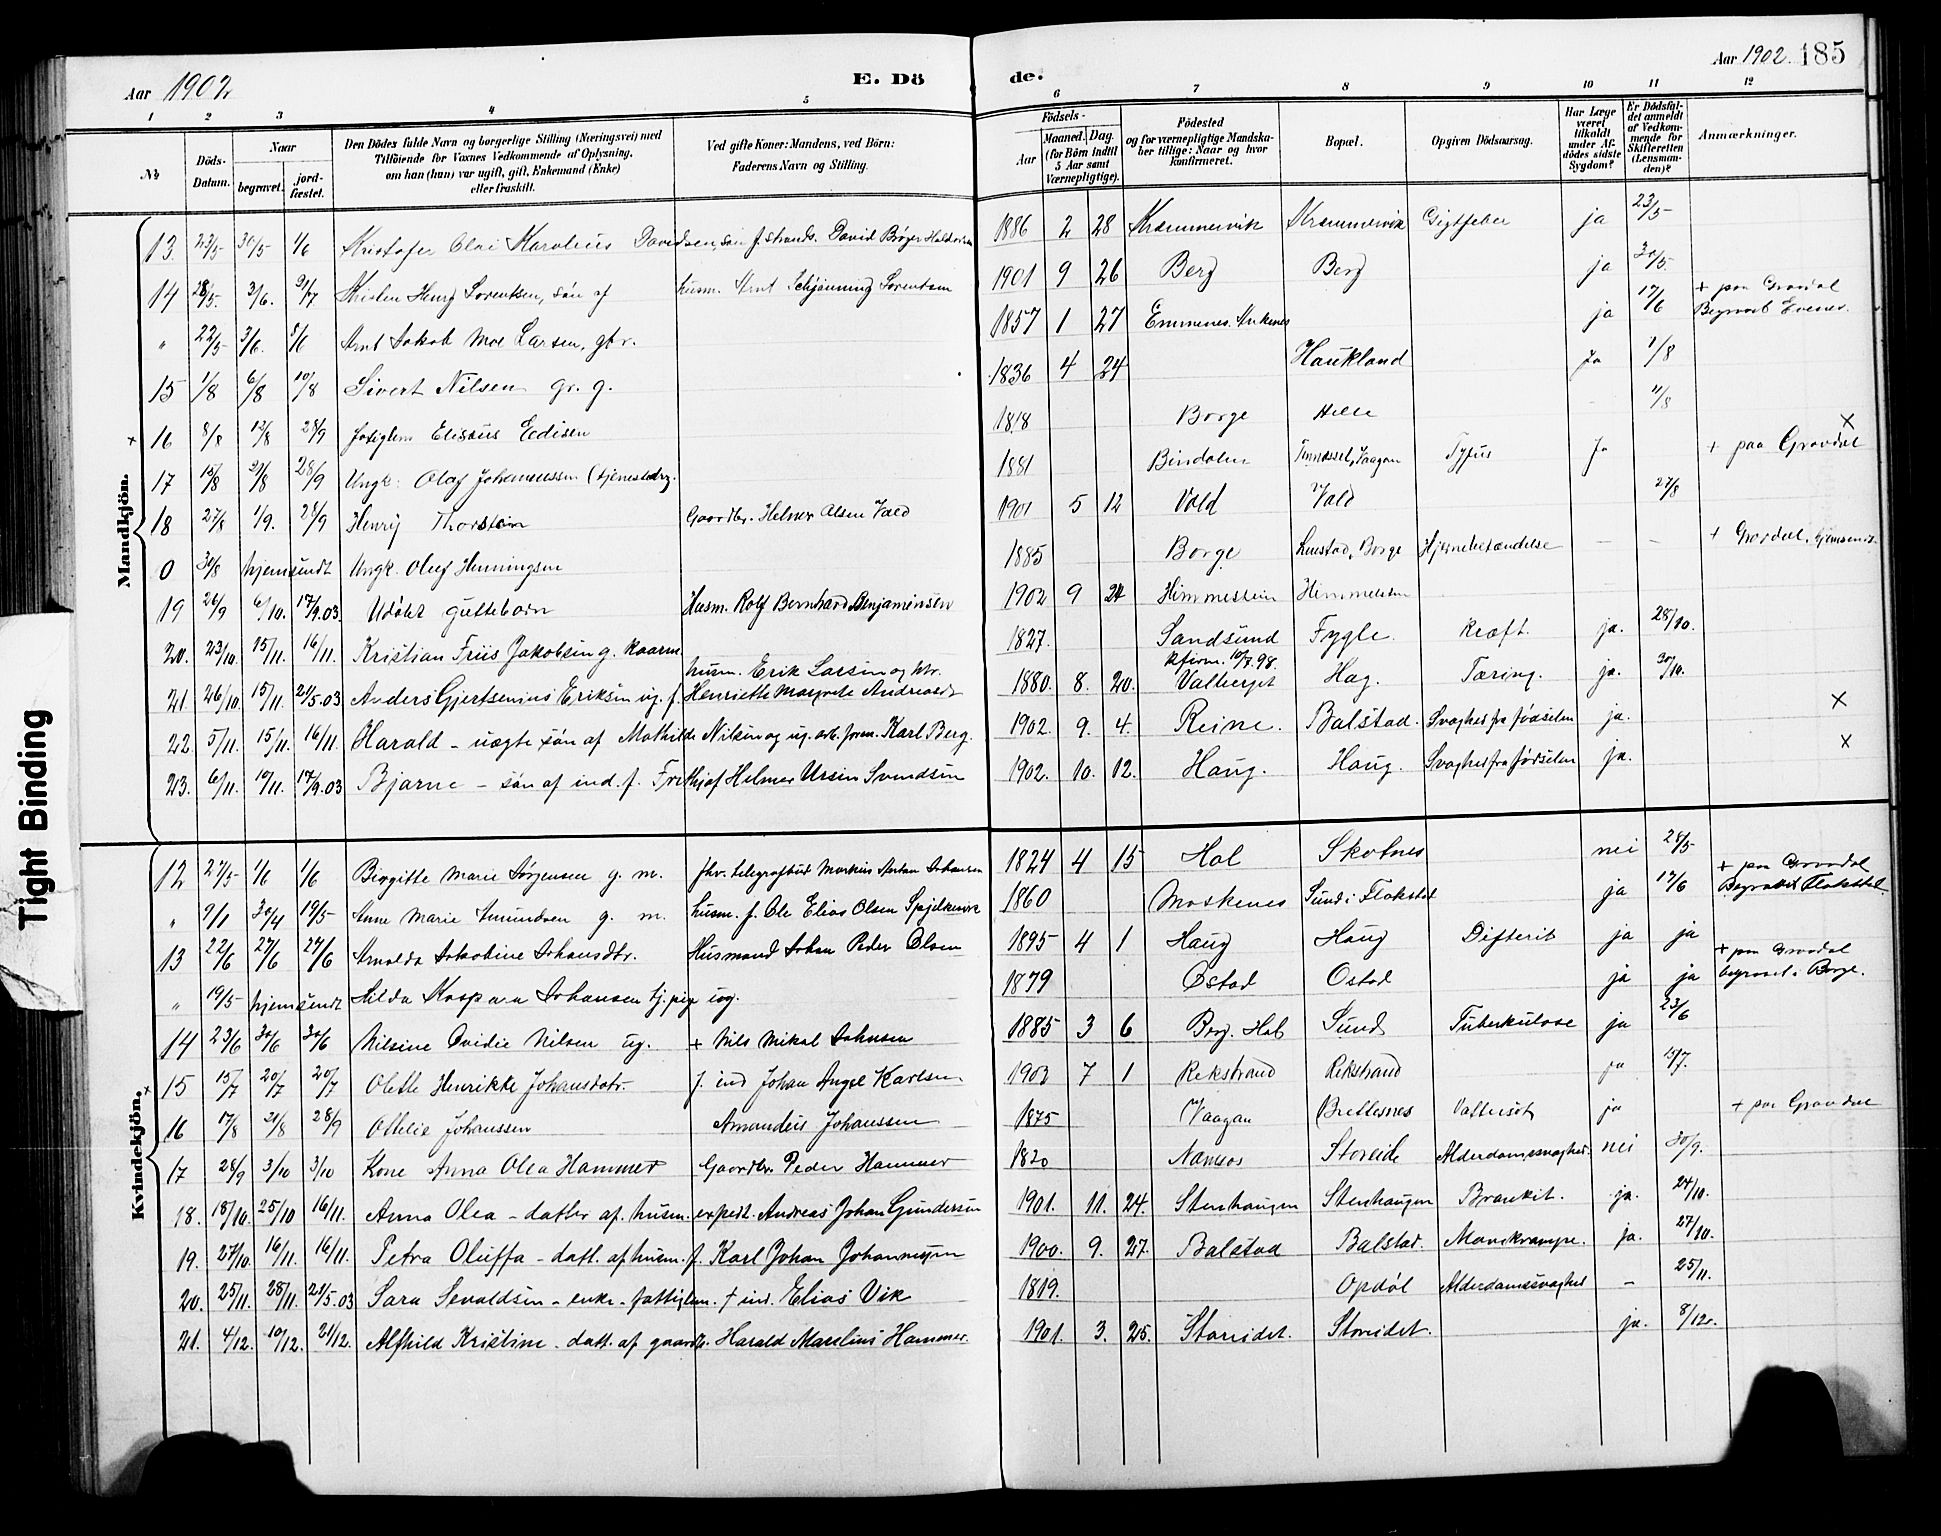 Aar 1902. E. Dö de. Aar 1902. 185
1 2 3 4 5 6 7 8 9 10 11 12
№ Döds-Datum. Naar begravet. jord-fæstet. Den Dödes fulde Navn og borgerlige Stilling (Næringsvei) med Tilföiende for Voxnes Vedkommende af Oplysning, om han (hun) var ugift, gift, Enkemand (Enke) eller fraskilt. Ved gifte Koner: Mandens, ved Börn: Faderens Navn og Stilling. Födsels- Aar Maaned. Dag. (for Börn indtil 5 Aar samt Værnepligtige). Födested og for værnepligtige Mandskaber tillige: Naar og hvor konfirmeret. Bopæl. Opgiven Dödsaarsag. Har Læge været tilkaldt under Afdödes sidste Sygdom? Er Dödsfaldet anmeldt af Vedkommende for Skifteretten (Lensmanden)? Anmærkninger.
Mandkjön.
13 23/5 30/5 1/6 Kristofer Olai Karolius Davidsen, søn f. strands. David Brøger 1886 2 28 Kræmmervik Kræmmervik Gigtfeber ja 23/5
14 28/5. 3/6. Kristen Henry Lorentsen, søn af husm. Arnt Schjønning Lorentsen 1901 9 26 Berg Berg ja 30/5.
" 22/5 3/6. Arnt Jakob Moe Larsen, gbr. 1857 1 27 Emmenes. Ankenes ja 17/6 + paa Gravdal Begravet Evenes.
15 1/8 6/8 10/8 Sivert Nilsen gr. g. 1836 4 24 Haukland Ja 1/8
+ 16 8/8 12/8 28/9 Elisæus Edisen 1818 Borge 11/8 x
17 15/8 28/9 Ungk. Olaf Johannessen (tjenestedrg. 1881 Bindalen Vaagan Tyfus Ja + paa Gravdal
18 27/8 1/9. 28/9 Henry Thorstein Gaardbr. Helmer Olsen Vald 1901 5 12 Vold Vald 27/8
0 30/8 hjemsendt Ungk. Oluf Henningsen 1885 Borge Borge Hjernebetændelse — — + Gravdal, hjemsendt.
19 26/9 6/10. 17/9.03. Udøbt guttebarn Husm. Rolf Bernhard Benjaminsen 1902 9 24 Himmelstein Himmelsten
20. 23/10. 15/11. 16/11. Kristian Friis Jakobsen g. kaarm. 1827. Sandsund Fygle. Kræft. ja. 28/10.
21. 26/10. 15/11. 21/5.03 Anders Gjertsenius Eriksen ug. f. husm. Erik Larsen og htr. Henriette Margrete Andreasdt 1880. 8. 20. kfirm. 10/7.98. Valberget Hag. Tæring. ja. 30/10.
22. 5/11. 15/11. 16/11. Harald – uægte søn af Mathilde Nilsen og ug. arb. form. Karl Berg. 1902. 9. 4. Reine. Balstad. Svaghet fra fødselen ja. x
23. 6/11. 10/11. 17/9.03 Bjarne – søn af ind. f. Frithjof Helmer Ursin Svendsen 1902. 10. 12. Haug. Haug. Svaghet fra fødselen ja. x
Kvindekjön.
12 27/5 1/6 1/6 Birgitte Marie Sørjensen g. m. fhv. telegrafbud Markus Johansen 1824 4 15 Hol Skotnes nei 28/5
" 9/1 30/4 19/5 Anne Marie Amundsen g. m. husm. f. Ole Elias Olsen 1860 Moskenes Sund i Flakstad ja 17/6 + paa Gravdal Begravet Flakstad
13 22/6 27/6 27/6 Arnolda Jakobine Johansdtr. Husmand Johan Peder Olsen 1895 4 1 Haug Haug Difterit ja ja
" 19/5 hjemsendt Hilda Kaspara Johansen tj.pige ug. 1879 Østad Ostad ja ja + paa Gravdal begravet i Borge.
14 23/6 30/6 30/6 Nilsine Ovidie Nilsen ug. + Nils Mikal Johnsen 1885 3 6 Berg. Hol Sund Tuberkulose ja 23/6
x 15 15/7 20/7 20/7 Olette Henrikke Johansdatr. f. ind Johan Angel Karlsen. 1902 7 1 Rekstrand Rekstrand ja 15/7.
16 17/8 21/8 28/9 Ottelie Johanssen Amandus Johanssen 1875 Vaagan Brettesnes Vattersot ja + paa Gravdal
17 28/9 3/10 3/10 Kone Anna Olea Hammer Gaardbr. Peder Hammer 1820 Namsos Storeide Alderdomssvaghed. nei 30/9.
18. 18/10. 25/10 16/11. Anna Olea – datter af. husm. expedt. Andreas Johan Gundersen 1901. 11. 24. Stenhaugen Stenhaugen Bronkit. ja. 24/10.
19. 27/10. 16/11. 16/11. Petra Oluffa – datt. af husm. f. Karl Johan Johannesen 1900. 9. 27. Balstad Balstad. Mavekrampe. ja. 27/10.
20. 25/11. 28/11. 21/5.03 Sara Sevaldsen – enke – fattiglem. † ind. Elias Vik 1819. Opdøl Alderdomssvaghet — 25/11.
21. 4/12. 10/12. 21/12. Alfhild Kristine – datt. af gaardb. Harald Marelius Hammer. 1901. 3. 25. Storeidet. Storeidet. ja. 8/12.
Tight Binding